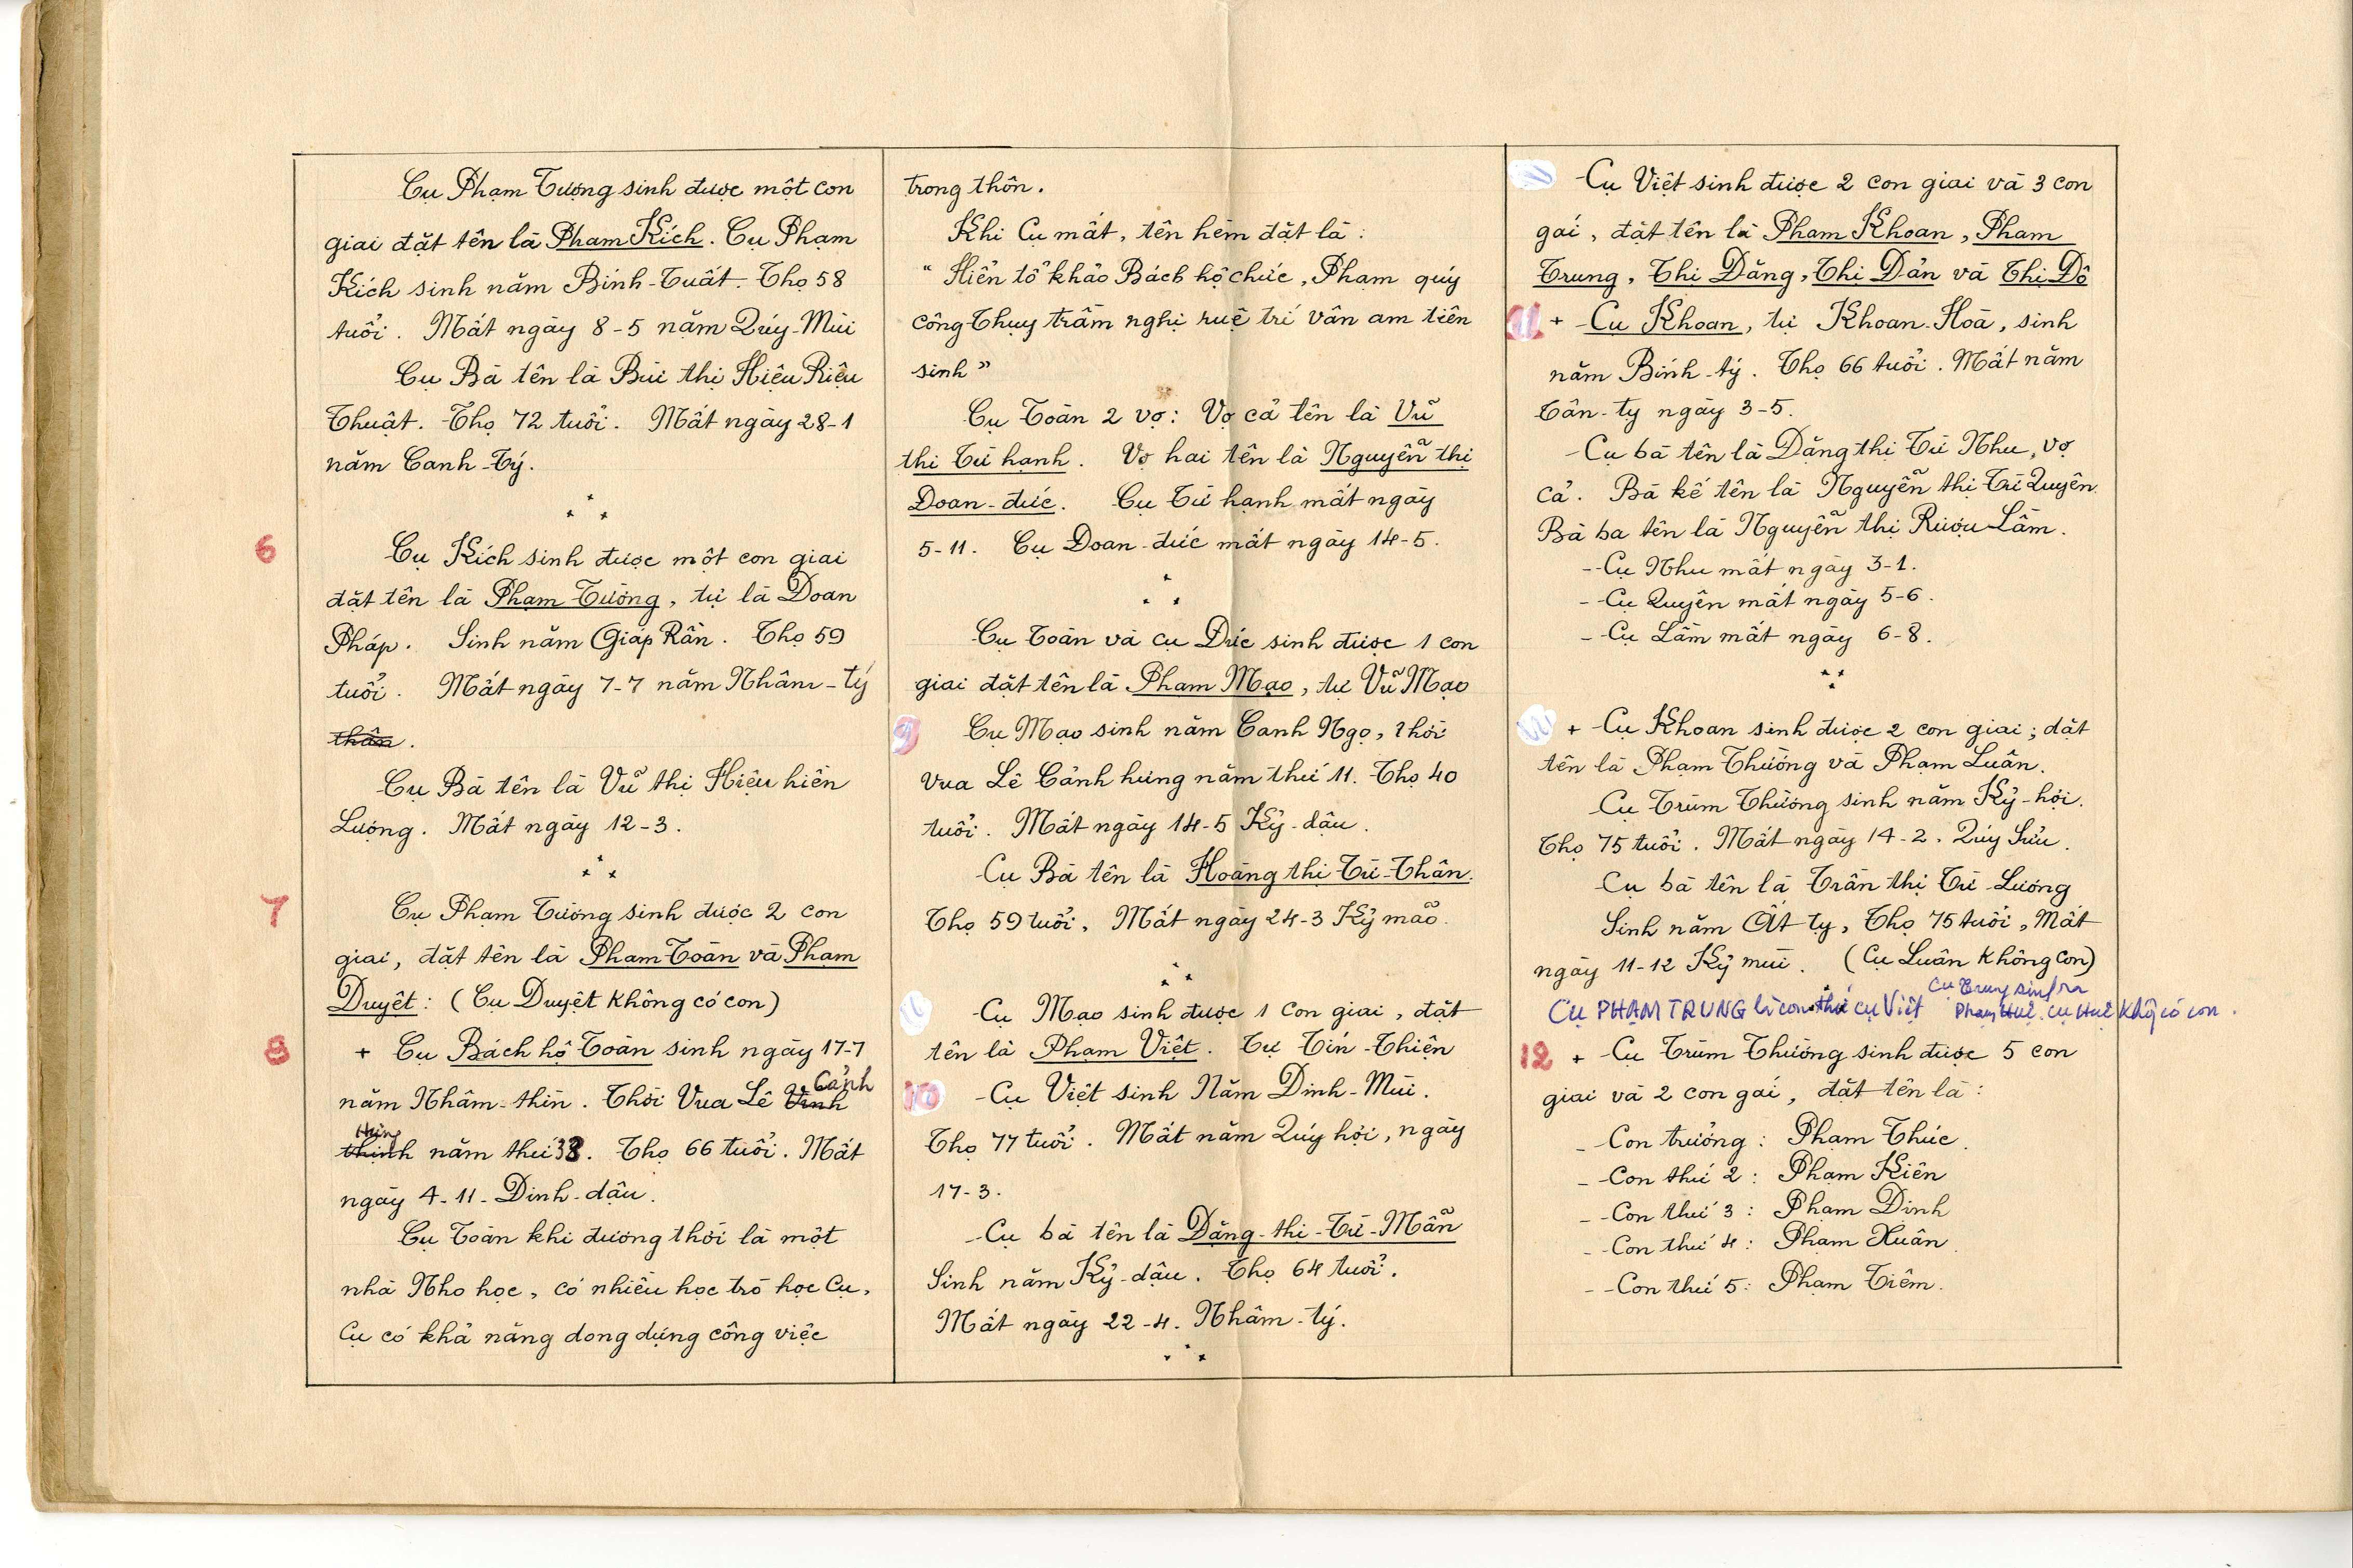 Cụ Phạm Tượng sinh được một con
giai đặt tên là Phạm Kích. Cụ Phạm
Kích sinh năm Bính-Tuất. Thọ 58
tuổi. Mất ngày 8-5 năm Qúy-Mùi
Cụ Bà tên là Bùi thị Hiệu Riệu
Thuật. Thọ 72 tuổi. Mất ngày 28-1
năm Canh-Tý.
6
Cụ Kích sinh được một con giai
đặt tên là Phạm Tường, tự là Doan
Pháp. Sinh năm Giáp Rần. Thọ 59
tuổi. Mất ngày 7-7 năm Nhâm-tý
thân.
Cụ Bà tên là Vũ thị Hiệu hiền
Lương. Mất ngày 12-3.
7
Cụ Phạm Tường sinh được 2 con
giai, đặt tên là Phạm Toàn và Phạm
Duyệt: (Cụ Duyệt không có con)
8
+ Cụ Bách hộ Toàn sinh ngày 17-7
năm Nhâm-thìn. Thời Vua Lê Vĩnh Cảnh
thịnh Hưng năm thứ 33. Thọ 66 tuổi. Mất
ngày 4-11-Dinh-dậu.
Cụ Toàn khi đương thời là một
nhà Nho học, có nhiều học trò học Cụ,
Cụ có khả năng dong dựng công việc
trong thôn.
Khi Cụ mất, tên hèm đặt là:
"Hiển tổ khảo Bách hộ chức, Phạm quý
công Thụy trầm nghị ruệ trí vân am tiên
sinh"
Cụ Toàn 2 vợ: Vợ cả tên là Vũ
thị Từ hạnh. Vợ hai tên là Nguyễn thị
Doan-đức. Cụ Từ hạnh mất ngày
5-11. Cụ Doan-đức mất ngày 14-5.
Cụ Toàn và cụ Đức sinh được 1 con
giai đặt tên là Phạm Mạo, tự Vũ Mạo
9
Cụ Mạo sinh năm Canh Ngọ, thời
vua Lê Cảnh hưng năm thứ 11. Thọ 40
tuổi. Mất ngày 14-5 Kỷ-dậu.
Cụ Bà tên là Hoàng thị Từ-Thân.
Thọ 59 tuổi, Mất ngày 24-3 Kỷ mão.
Cụ Mạo sinh được 1 con giai, đặt
tên là Phạm Việt. Tự Tín-Thiện
10
-Cụ Việt sinh Năm Dinh-Mùi.
Thọ 77 tuổi. Mất năm Qúy hợi, ngày
17-3.
-Cụ bà tên là Dặng-thị-Từ-Mẫn
Sinh năm Kỷ-dậu. Thọ 64 tuổi.
Mất ngày 22-4. Nhâm-tý.
-Cụ Việt sinh được 2 con giai và 3 con
gái, đặt tên là Phạm Khoan, Phạm
Trung, Thị Dăng, Thị Dản và Thị Dô
11
+ -Cụ Khoan, tự Khoan-Hoà, sinh
năm Bính-tý. Thọ 66 tuổi. Mất năm
Tân-tỵ ngày 3-5.
-Cụ bà tên là Dặng thị Từ Nhu, vợ
cả. Bà kế tên là Nguyễn thị Từ Quyên
Bà ba tên là Nguyễn thị Rượu Lâm.
--Cụ Nhu mất ngày 3-1.
--Cụ Quyên mất ngày 5-6.
--Cụ Lâm mất ngày 6-8.
+ -Cụ Khoan sinh được 2 con giai; đặt
tên là Phạm Thường và Phạm Luân.
Cụ Trùm Thường sinh năm Kỷ-hợi.
Thọ 75 tuổi. Mất ngày 14-2. Qúy Sửu.
Cụ bà tên là Trần thị Từ-Lương
Sinh năm Ất tỵ, Thọ 75 tuổi, Mất
ngày 11-12 Kỷ mùi. (Cụ Luân không con)
Cụ PHẠM TRUNG là con thứ cụ Việt Cụ Trung sinh ra
Phạm Huề. Cụ Huề không có con.
12
+ -Cụ Trùm Thường sinh được 5 con
giai và 2 con gái, đặt tên là:
- -Con trưởng: Phạm Thúc.
- -Con thứ 2: Phạm Kiên
- -Con thứ 3: Phạm Dinh
- -Con thứ 4: Phạm Xuân.
- -Con thứ 5: Phạm Tiêm.